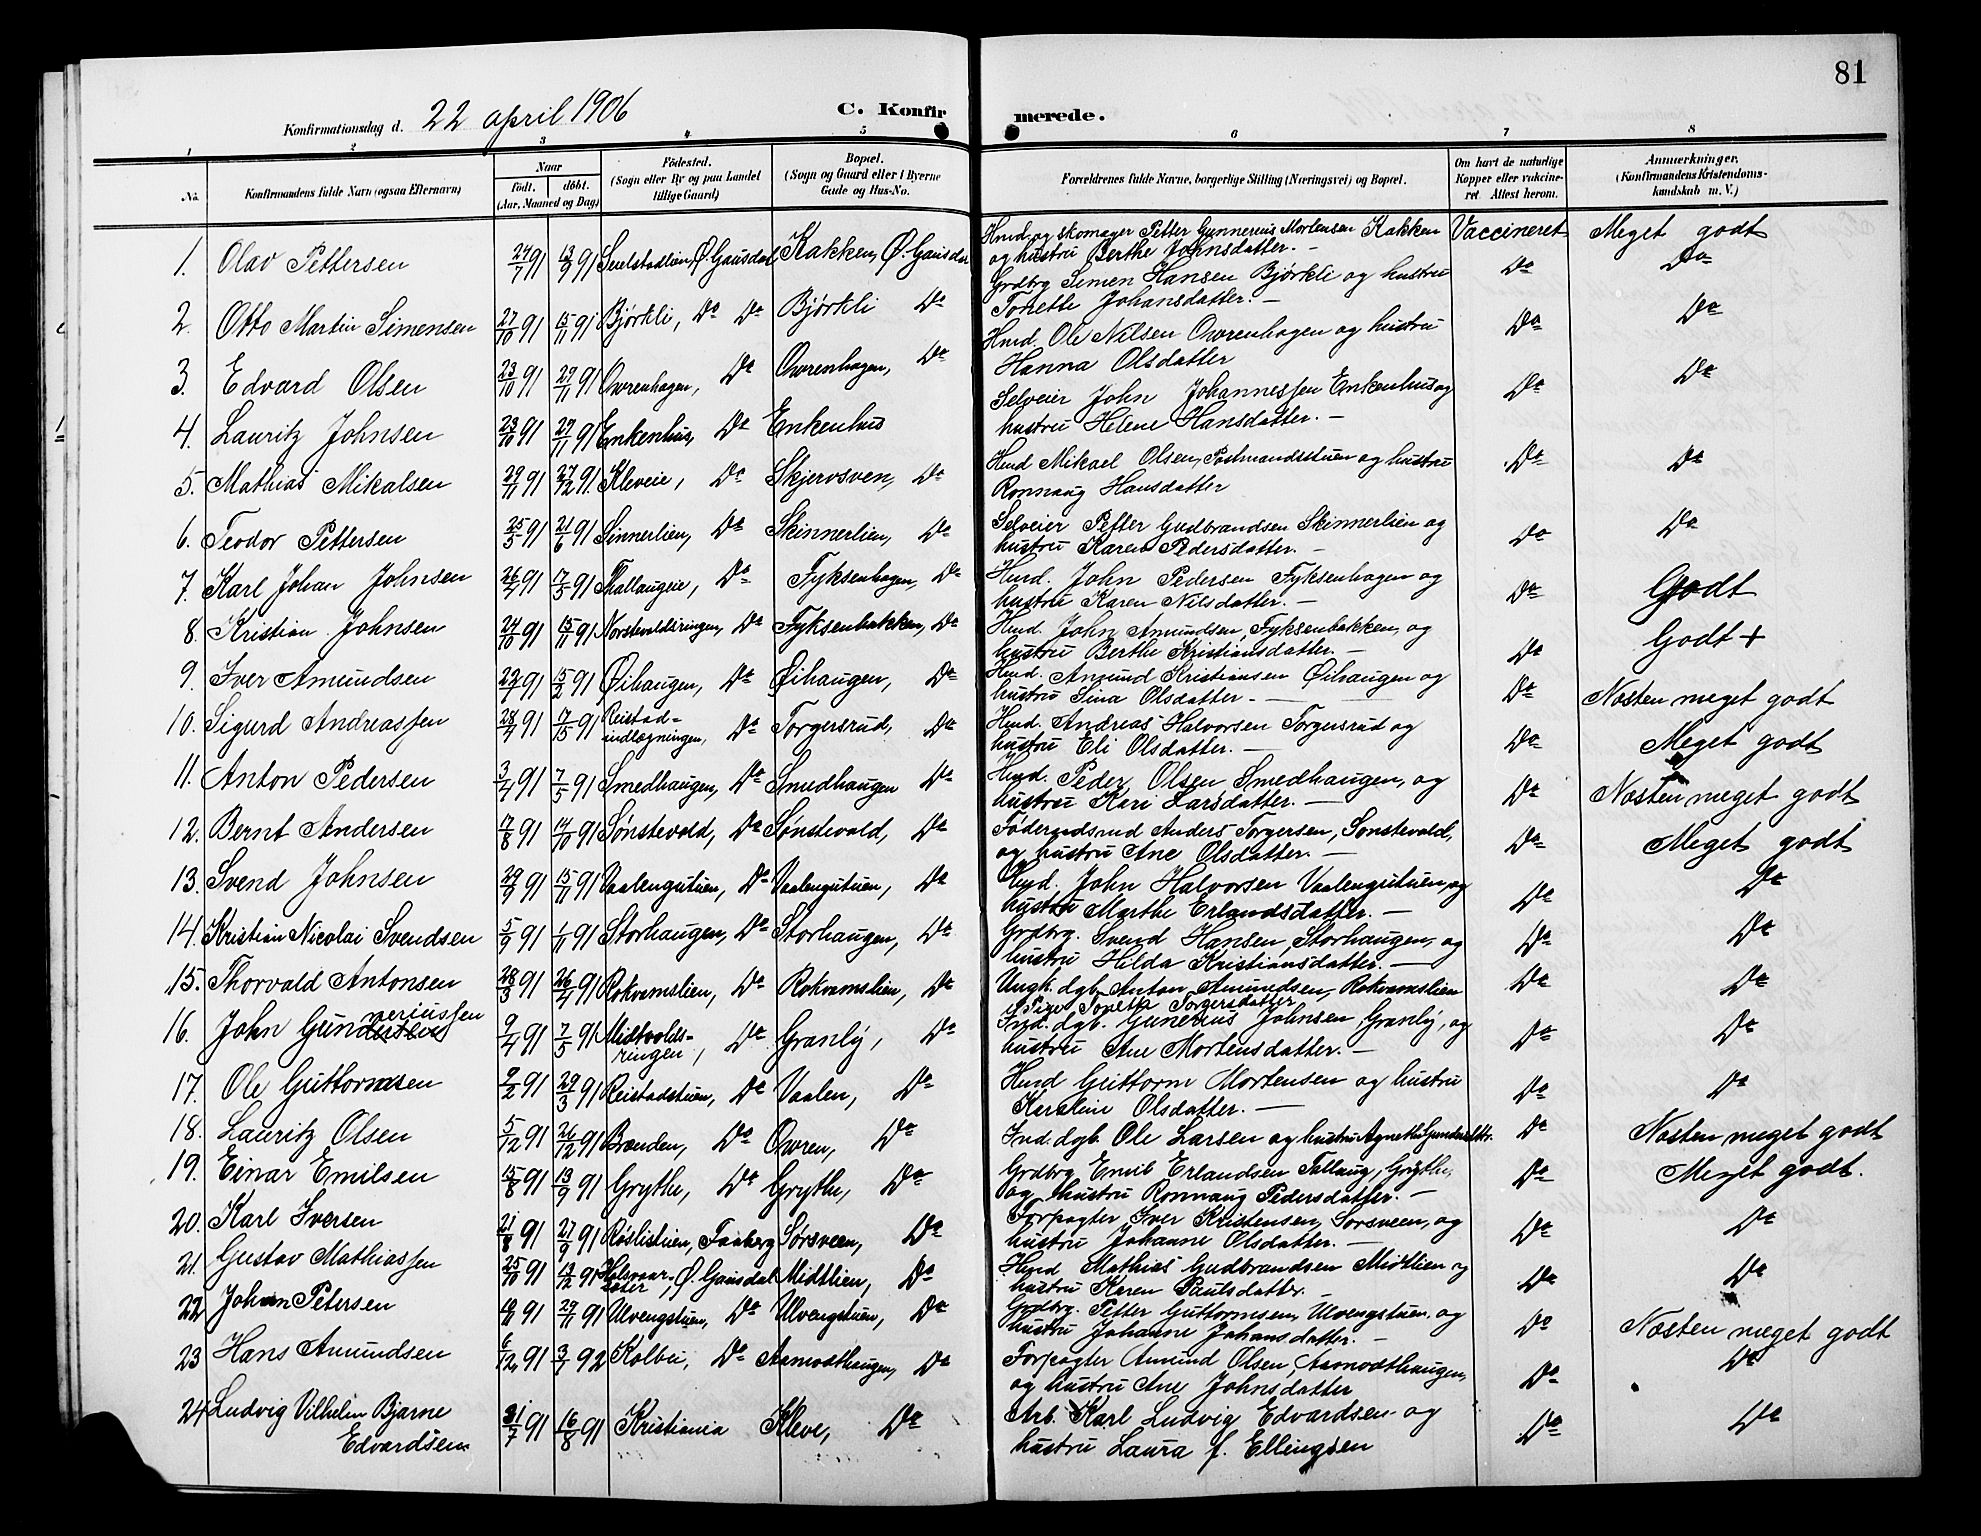 81
Konfirmationsdag d. 22 april 1906
C. Konfirmerede.
1 2 3 4 5 6 7 8
No. Konfirmandens fulde Navn (ogsaa Efternavn) Naar født. døbt. (Aar, Maaned og Dag) Fødested. (Sogn eller By og paa Landet tillige Gaard) Bopæl. (Sogn og Gaard eller i Byerne Gade og Hus-No. Forældrenes fulde Navne, borgerlige Stilling (Næringsvei) og Bopæl. Om havt de naturlige Kopper eller vakcineret. Attest herom. Anmærkninger, (Konfirmandens Kristendomskundskab m. V.)
1. Olav Pettersen 24/7 91 13/9 91 Ø. Gausdal Kakken, Ø. Gausdal Hmd. og skomager Petter Gunnerius Mortensen Kakken Vaccineret Meget godt
og hustru Berthe Johnsdatter. –
2. Otto Martin Simensen 27/10 91 15/11 91 Bjørkli, Do Do Bjørkli Do Grdbrg Simen Hansen Bjørkli og hustru Do Do
Tonette Johansdatter. –
3. Edvard Olsen 23/10 91 29/11 91 Owrenhagen, Do Owrenhagen, Do Hmd. Ole Nilsen Owrenhagen og hustru Do Do
Hanna Olsdatter
4. Lauritz Johnsen 23/10 91 29/11 91 Enkenhus, Do Enkenhus Selveier John Johannessen Enkenhus og Do Do
hustru Helene Hansdatter. –
5. Mathias Mikalsen 29/11 91 27/12 91. Kleveie, Do Skjervsven, Do Hmd Mikael Olsen, Postmandsstuen og hustru Do Do
Ronnaug Hansdatter
6. Teodor Pettersen 25/5 91 21/6 91 Sinnerlien, Do Skinnerlien, Do Selveier Petter Gudbrandsen Skinnerlien og Do Do
hustru Karen Pedersdatter. –
7. Karl Johan Johnsen 26/4 91 17/5 91 Thallaugeie, Do Fyksenhagen, Do Hmd. John Pedersen Fyksenhagen og Do Godt
hustru Karen Nilsdatter. –
8. Kristian Johnsen 24/10 91 15/11 91 Do Fyksenbakken, Do Hmd. John Amundsen, Fyksenbakken, og Do Godt +
hustru Berthe Kristiansdatter. –
9. Iver Amundsen 91 91 Øihaugen, Do Øihaugen, Do Hmd. Amund Kristiansen Øihaugen og Do Næsten meget godt
hustru Sina Olsdatter –
10. Sigurd Andreassen 28/4 91 91 Reistad= Do Torgersrud, Do Hmd. Andreas Halvorsen Torgersrud og Do Meget godt
indlægningen, hustru Eli Olsdatter. –
11. Anton Pedersen 3/4 91 7/5 91 Smedhaugen, Do Smedhaugen Do Hmd. Peder Olsen Smedhaugen, og Do Næsten meget godt
hustru Kari Larsdatter. –
12. Bernt Andersen 17/8 91 14/10 91 Sønstevold, Do Sønstevold, Do Føderaadsmd Anders Torgersen, Sønstevold, Do Meget godt
og hustru Ane Olsdatter. –
13. Svend Johnsen 29/9 91 15/11 91 Vaalengutuen, Do Vaalengutuen, Do Hmd. John Halvorsen Vaalengutuen, og Do Do
hustru Marthe Erlandsdatter. –
14. Kristian Nicolai Svendsen 5/9 91 1/11 91 Storhaugen, Do Storhaugen, Do Grdbrg. Svend Hansen, Storhaugen, og Do Do
hustru Hilda Kristiansdatter. –
15. Thorvald Antonsen 28/3 91 26/4 91 Rokvamslien, Do Rokvamslien, Do Ungk. dgb. Anton Amundsen, Rokvamslien Do Do
& Pige Tonette Torgersdatter
16. John Gunneriussen 9/4 91 7/5 91 Midtvolds- Do Granly, Do Ind. dgb. Gunerius Johnsen, Granly, og Do Do
ringen, hustru Ane Mortensdatter. –
17. Ole Guttormsen 9/2 91 29/3 91 Reistadstuen, Do Vaalen, Do Hmd Guttorm Mortensen og hustru Do Do
Karoline Olsdatter. –
18. Lauritz Olsen 5/12 91 26/12 91 Brænden, Do Owren, Do Ind. dgb. Ole Larsen og hustru Agnethe Do Næsten meget godt
19. Einar Emilsen 15/8 91 13/9 91 Grythe, Do Grythe, Do Grdbrg Emil Erlandsen Tallaug, Grythe, Do Meget godt.
og hustru Ronnaug Pedersdatter. –
20. Karl Iversen 21/8 91 27/9 91 Røslistuen, Faaberg Sørsveen, Do Forpagter Iver Kristensen, Sørsveen, og Do Do
hustru Johanne Olsdatter. –
21. Gustav Mathiassen 25/10 91 13/12 91 Ø. Gausdal Midtlien, Do Hmd Mathias Gudbrandsen Midtlien og Do Do
hustru Karen Paulsdatter. –
22 Johan Petersen 91 29/11 91 Ulvengstuen, Do Ulvengstuen, Do Grdbrg. Petter Guttormsen, Ulvengstuen og Do Næsten meget godt
hustru Johanne Johansdatter. –
23 Hans Amundsen 6/12 91 3/1 92 Kolbei, Do Aamodthaugen, Do Forpagter Amund Olsen, Aamodthaugen, Do Do
og hustru Ane Johnsdatter
24 Ludvig Vilhelm Bjarne 31/7 91 16/8 91 Kristiania Kleve, Do Arb. Karl Ludvig Edvardsen og Do Do
Edvardsen hustru Laura f. Ellingsen